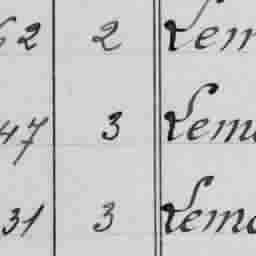 62 2 Lem
47 3 Lem
31 3 Lem